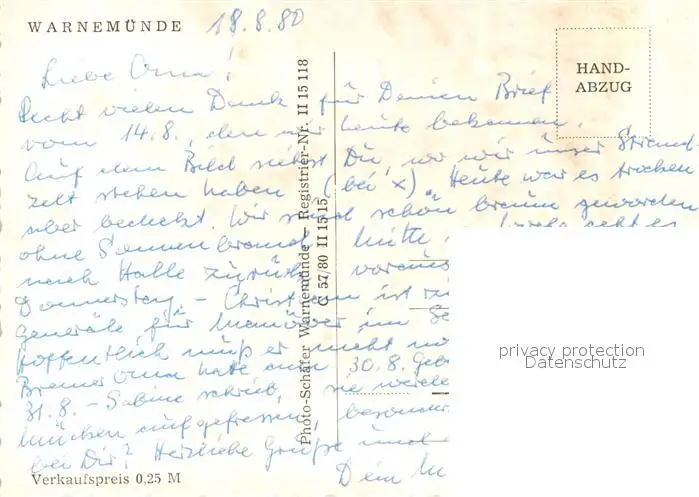 WARNEMÜNDE 18.8.80
HAND-
ABZUG
Liebe Oma!
Recht vielen Dank für Deinen Brief
vom 14.8., den wir heute bekamen.
Auf dem Bild siehst Du, wo wir unser Strand-
zelt stehen haben (bei x). Heute war es trocken
aber bedeckt. Wir sind schön braun geworden
ohne Sonnenbrand. Mitte geht es
nach Halle zurück, voraus
Donnerstag. – Christian ist
Generale für Manöver im
hoffentlich muß er nicht
Bremer Oma hatte am 30.8. Geb
31.8. – Sabine schrieb, sie werde
Mücken aufgefressen, besonders
bei Dir? Herzliche Grüße und
Dein M
Verkaufspreis 0,25 M
Photo-Schäfer Warnemünde – Registrier-Nr. II 15 118
C 57/80 II 15 15
privacy protection
Datenschutz